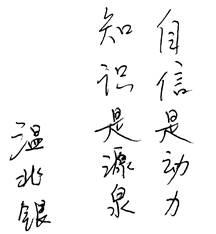 自信是动力
知识是源泉
温北银